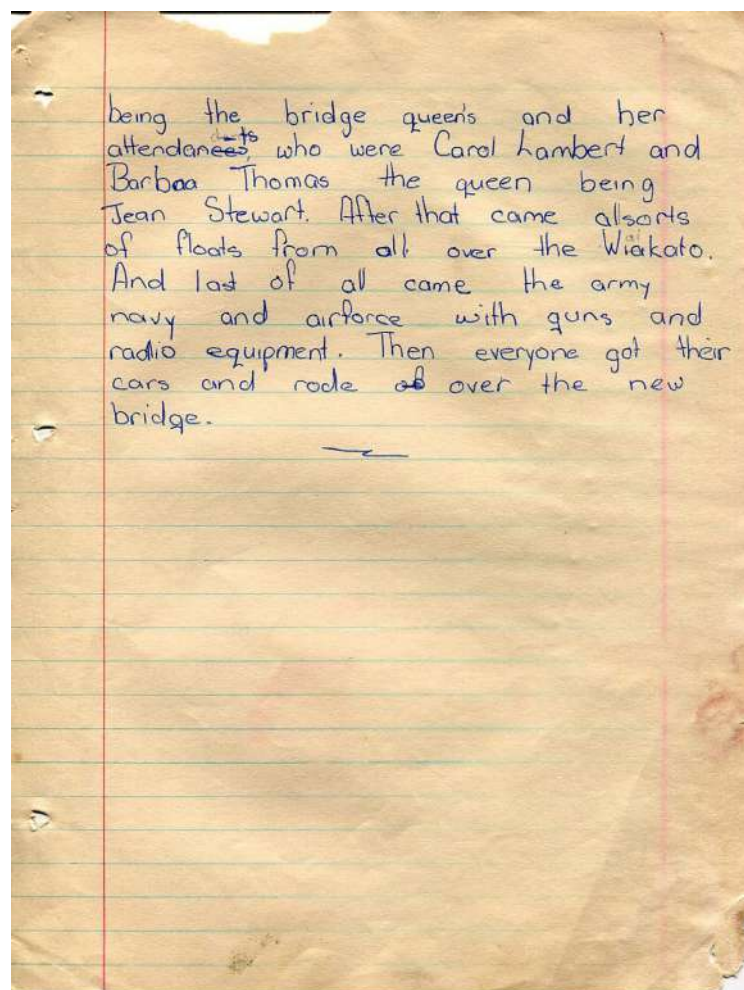 being the bridge queen's and her
attendants, who were Carol Lambert and
Barbaa Thomas the queen being
Jean Stewart. After that came allsorts
of floats from all over the Wiakato.
And last of all came the army
navy and airforce with guns and
radio equipment. Then everyone got their
cars and rode over the new
bridge.